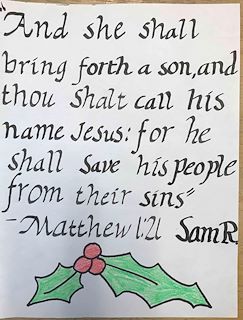 "And she shall
bring forth a son, and
thou shalt call his
name Jesus: for he
shall save his people
from their sins"
- Matthew 1:21 Sam R.